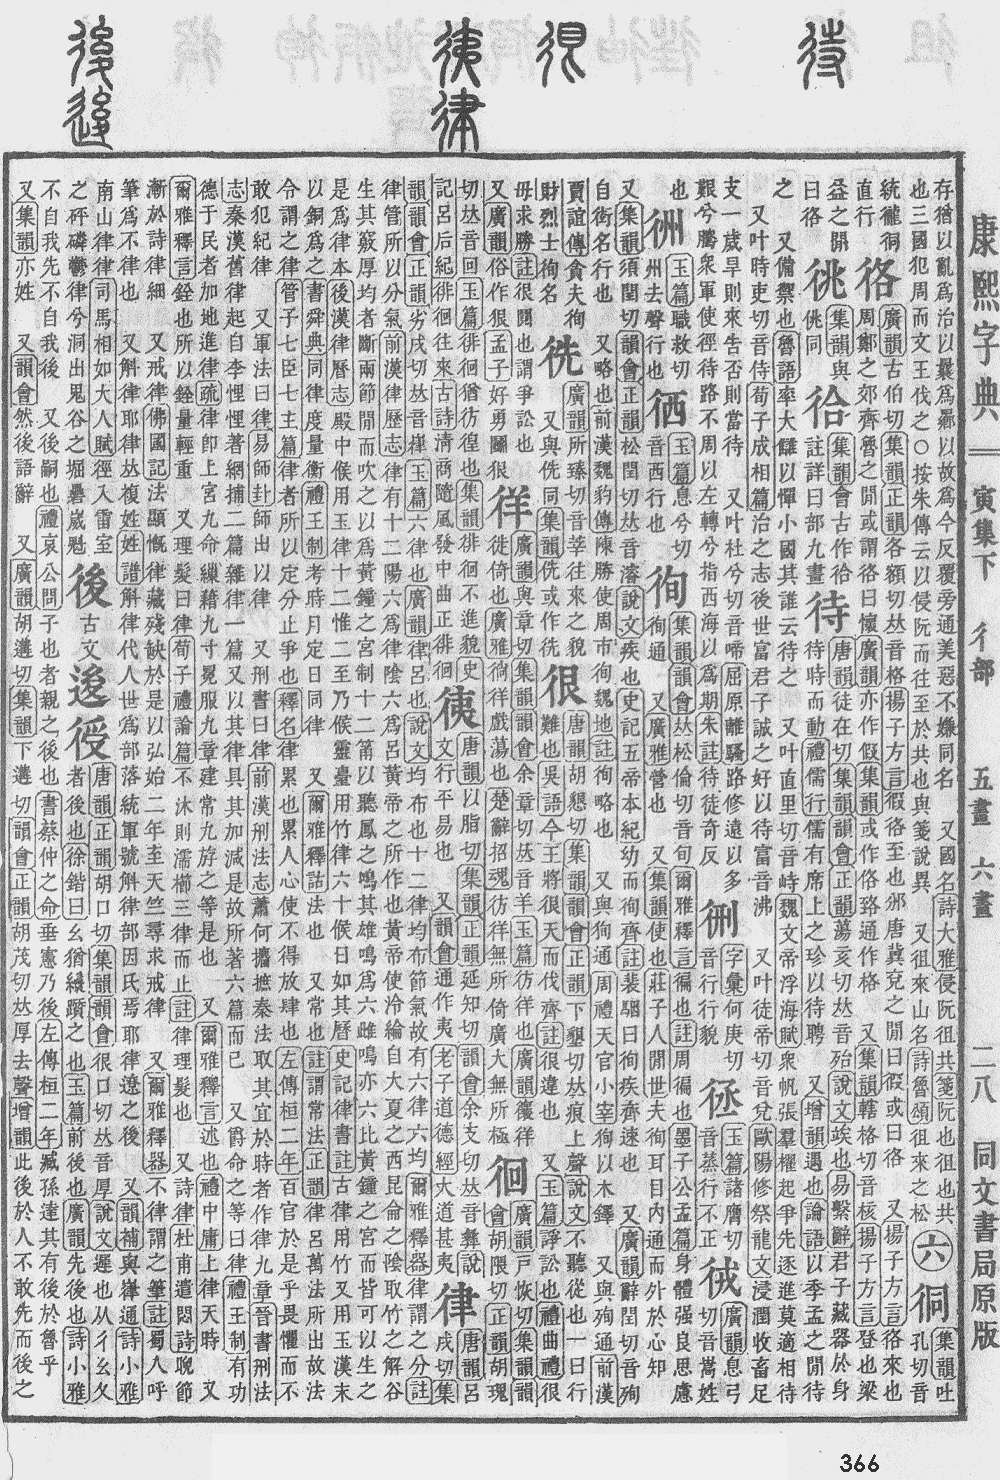 康熙字典 寅集下 彳部 五畫 六畫 二八 同文書局原版
存猶以亂爲治以曩爲曏以故爲今反覆旁通美惡不嫌同名 又國名詩大雅侵阮徂共箋阮也徂也共
也三國犯周而文王伐之〇按朱傳云以侵阮而往至於共也與箋說異 又徂來山名詩魯頌徂來之松
㊅
㣚 集韻吐孔切音統徿㣚直行
𢓜 廣韻古伯切集韻正韻各額切𠀤音格揚子方言徦𢓜至也邠唐冀兗之閒曰徦或曰𢓜 又揚子方言𢓜來也周鄭之郊齊魯之閒或謂𢓜曰懷廣韻亦作徦集韻或作佫 通作格 又集韻轄格切音核揚子方言登也梁益之閒曰𢓜
𢓝 集韻與佻同
㣛 集韻會古作㣛註詳曰部九畫
待 唐韻徒在切集韻韻會正韻蕩亥切𠀤音殆說文竢也易繫辭君子藏器於身待時而動禮儒行儒有席上之珍以待聘 又增韻遇也論語以季孟之閒待之 又備禦也魯語率大讎以憚小國其誰云待之 又叶直里切音峙魏文帝浮海賦衆帆張羣櫂起爭先逐進莫適相待 又叶時吏切音侍荀子成相篇治之志後世富君子誠之好以待富音沸 又叶徒帝切音兌歐陽修祭龍文浸潤收畜足支一歲旱則來告否則當待 又叶杜兮切音啼屈原離騷路修遠以多艱兮騰衆軍使徑待路不周以左轉兮指西海以爲期朱註待徒奇反
㣜 字彙何庚切音行行貌
𢓞 玉篇諸膺切音蒸行不正
㣝 廣韻息弓切音嵩姓也
𢓡 玉篇職救切州去聲行也
𢓭 玉篇息兮切音西行也
徇 集韻韻會𠀤松倫切音旬爾雅釋言徧也註周徧也墨子公孟篇身體强良思慮徇通 又廣雅營也 又集韻使也莊子人閒世夫徇耳目內通而外於心知 又廣韻辭閏切音殉集韻須閏切韻會正韻松閏切𠀤音濬說文疾也史記五帝本紀幼而徇齊註裴駰曰徇疾齊速也 又集韻自衒名行也 又略也前漢魏豹傳陳勝使周市徇魏地註徇略也 又與狥通周禮天官小宰徇以木鐸 又與殉通前漢賈誼傳貪夫徇財烈士徇名
㣡 廣韻所臻切音莘往來之貌 又與侁同集韻侁或作㣡
很 唐韻胡懇切集韻韻會正韻下墾切𠀤痕上聲說文不聽從也一曰行難也吳語今王將很天而伐齊註很違也 又玉篇諍訟也禮曲禮很毋求勝註很鬩也謂爭訟也 又廣韻俗作狠孟子好勇鬭很
徉 廣韻與章切集韻韻會余章切𠀤音羊玉篇彷徉也廣韻徜徉徙倚也廣雅徜徉戲蕩也楚辭招魂彷徉無所倚廣大無所極
徊 廣韻戸恢切集韻韻會胡隈切正韻胡瑰切𠀤音回玉篇徘徊猶彷徨也集韻徘徊不進貌史記呂后紀徘徊往來古詩淸商隨風發中曲正徘徊
徚 唐韻以脂切集韻正韻延知切韻會余支切𠀤音彝說文行平易也 又韻會通作夷老子道德經大道甚夷
律 唐韻呂戌切集韻韻會正韻劣戌切𠀤音嵂玉篇六律也廣韻律呂也說文均布也十二律均布節氣故有六律六均爾雅釋器律謂之分註律管所以分氣前漢律歷志律有十二陽六爲律隂六爲呂黃帝之所作也黃帝使泠綸自大夏之西昆侖之隂取竹之解谷生其竅厚均者斷兩節閒而吹之以爲黃鐘之宮制十二筩以聽鳳之鳴其雄鳴爲六雌鳴亦六比黃鐘之宮而皆可以生之是爲律本後漢律曆志殿中候用玉律十二惟二至乃候靈臺用竹律六十候日如其曆史記律書註古律用竹又用玉漢末以銅爲之書舜典同律度量衡禮王制考時月定日同律 又爾雅釋詁法也 又常也註謂常法正韻律呂萬法所出故法令謂之律管子七臣七主篇律者所以定分止爭也釋名律累也累人心使不得放肆也左傳桓二年百官於是乎畏懼而不敢犯紀律 又軍法曰律易師卦師出以律 又刑書曰律前漢刑法志蕭何攟摭秦法取其宜於時者作律九章晉書刑法志秦漢舊律起自李悝悝著網捕二篇雜律一篇又以其律具其加減是故所著六篇而已 又爵命之等曰律禮王制有功德于民者加地進律疏律卽上宮九命繅藉九寸冕服九章建常九斿之等是也 又爾雅釋言述也禮中庸上律天時 又爾雅釋言銓也所以銓量輕重 又理髮曰律荀子禮論篇不沐則濡櫛三律而止註律理髮也 又詩律杜甫遣悶詩晚節漸於詩律細 又戒律佛國記法顯慨律藏殘缺於是以弘始二年至天竺尋求戒律 又爾雅釋器不律謂之筆註蜀人呼筆爲不律也 又斛律耶律𠀤複姓姓譜斛律代人世爲部落統軍號斛律部因氏焉耶律遼之後 又韻補與嵂通詩小雅南山律律司馬相如大人賦徑入雷室之砰磷鬱律兮洞出鬼谷之堀礨崴魁
後 古文 𨒥 𢔏 唐韻正韻胡口切集韻韻會很口切𠀤音厚說文遲也从彳幺夊者後也徐鍇曰幺猶纘躓之也玉篇前後也廣韻先後也詩小雅不自我先不自我後 又後嗣也禮哀公問子也者親之後也書蔡仲之命垂憲乃後左傳桓二年臧孫達其有後於魯乎 又集韻亦姓 又韻會然後語辭 又廣韻胡遘切集韻下遘切韻會正韻胡茂切𠀤厚去聲增韻此後於人不敢先而後之
366